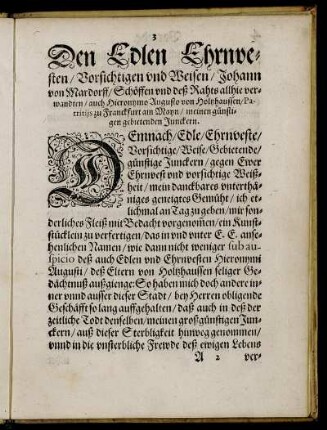 3
Den Edlen Ehrnve-
sten / Vorsichtigen vnd Weisen / Johann
von Mardorff / Schöffen vnd deß Rahts allhie ver-
wandten / auch Hieronymo Augusto von Holtzhaussen / Pa-
tritijs zu Franckfurt am Mayn / meinen günsti-
gen gebietenden Junckern.
DEmnach / Edle / Ehrnveste /
Vorsichtige / Weise / Gebietende /
günstige Junckern / gegen Ewer
Ehrnvest vnd vorsichtige Weiß-
heit / mein danckbares vnterthä-
niges geneigtes Gemüht / ich et-
lichmal an Tag zugeben / mir son-
derliches Fleiß mit Bedacht vorgenom̃en / ein Kunst-
stücklein zu verfertigen / das in vnd vnter E. E. anse-
henlichen Namen / wie dann nicht weniger sub au-
spicio deß auch Edlen vnd Ehrnvesten Hieronymi
Augusti / deß Eltern von Holtzhaussen seliger Ge-
dächtnuß außgienge: So haben mich doch andere in-
ner vnnd ausser dieser Stadt / bey Herren obligende
Geschäfft so lang auffgehalten / daß auch in deß der
zeitliche Todt denselben / meinen großgünstigen Jun-
ckern / auß dieser Sterbligkeit hinweg genommen /
vnnd in die vnsterbliche Frewde deß ewigen Lebens
A 2 ver-